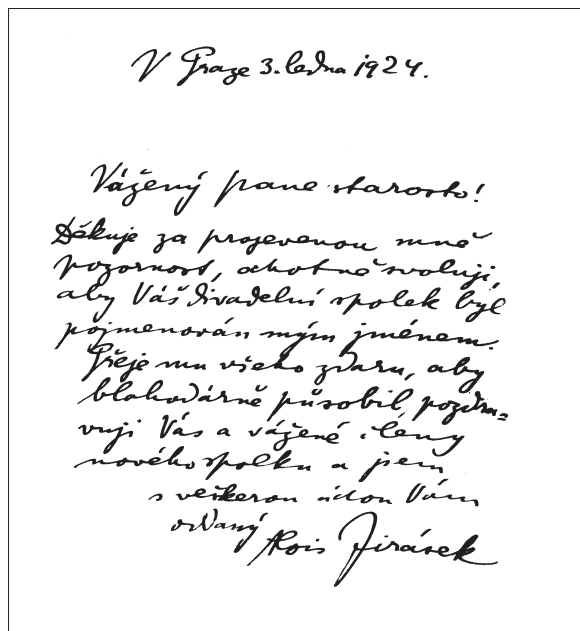 V Praze 3. ledna 1924.
Vážený pane starosto!
Děkuje za projevenou mně
pozornost, ochotně svoluji,
aby Váš divadelní spolek byl
pojmenován mým jménem.
Přeje mu všeho zdaru, aby
blahodárně působil, pozdra=
vuji Vás a vážené členy
nového spolku a jsem
s veškerou úctou Vám
oddaný Alois Jirásek